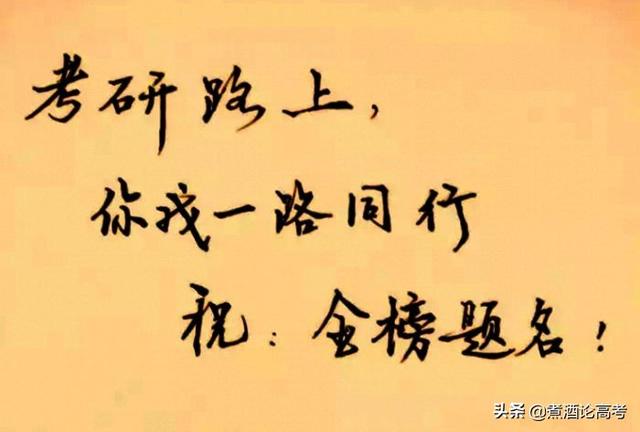 考研路上，
你我一路同行
祝：金榜题名！
头条 @煮酒论高考